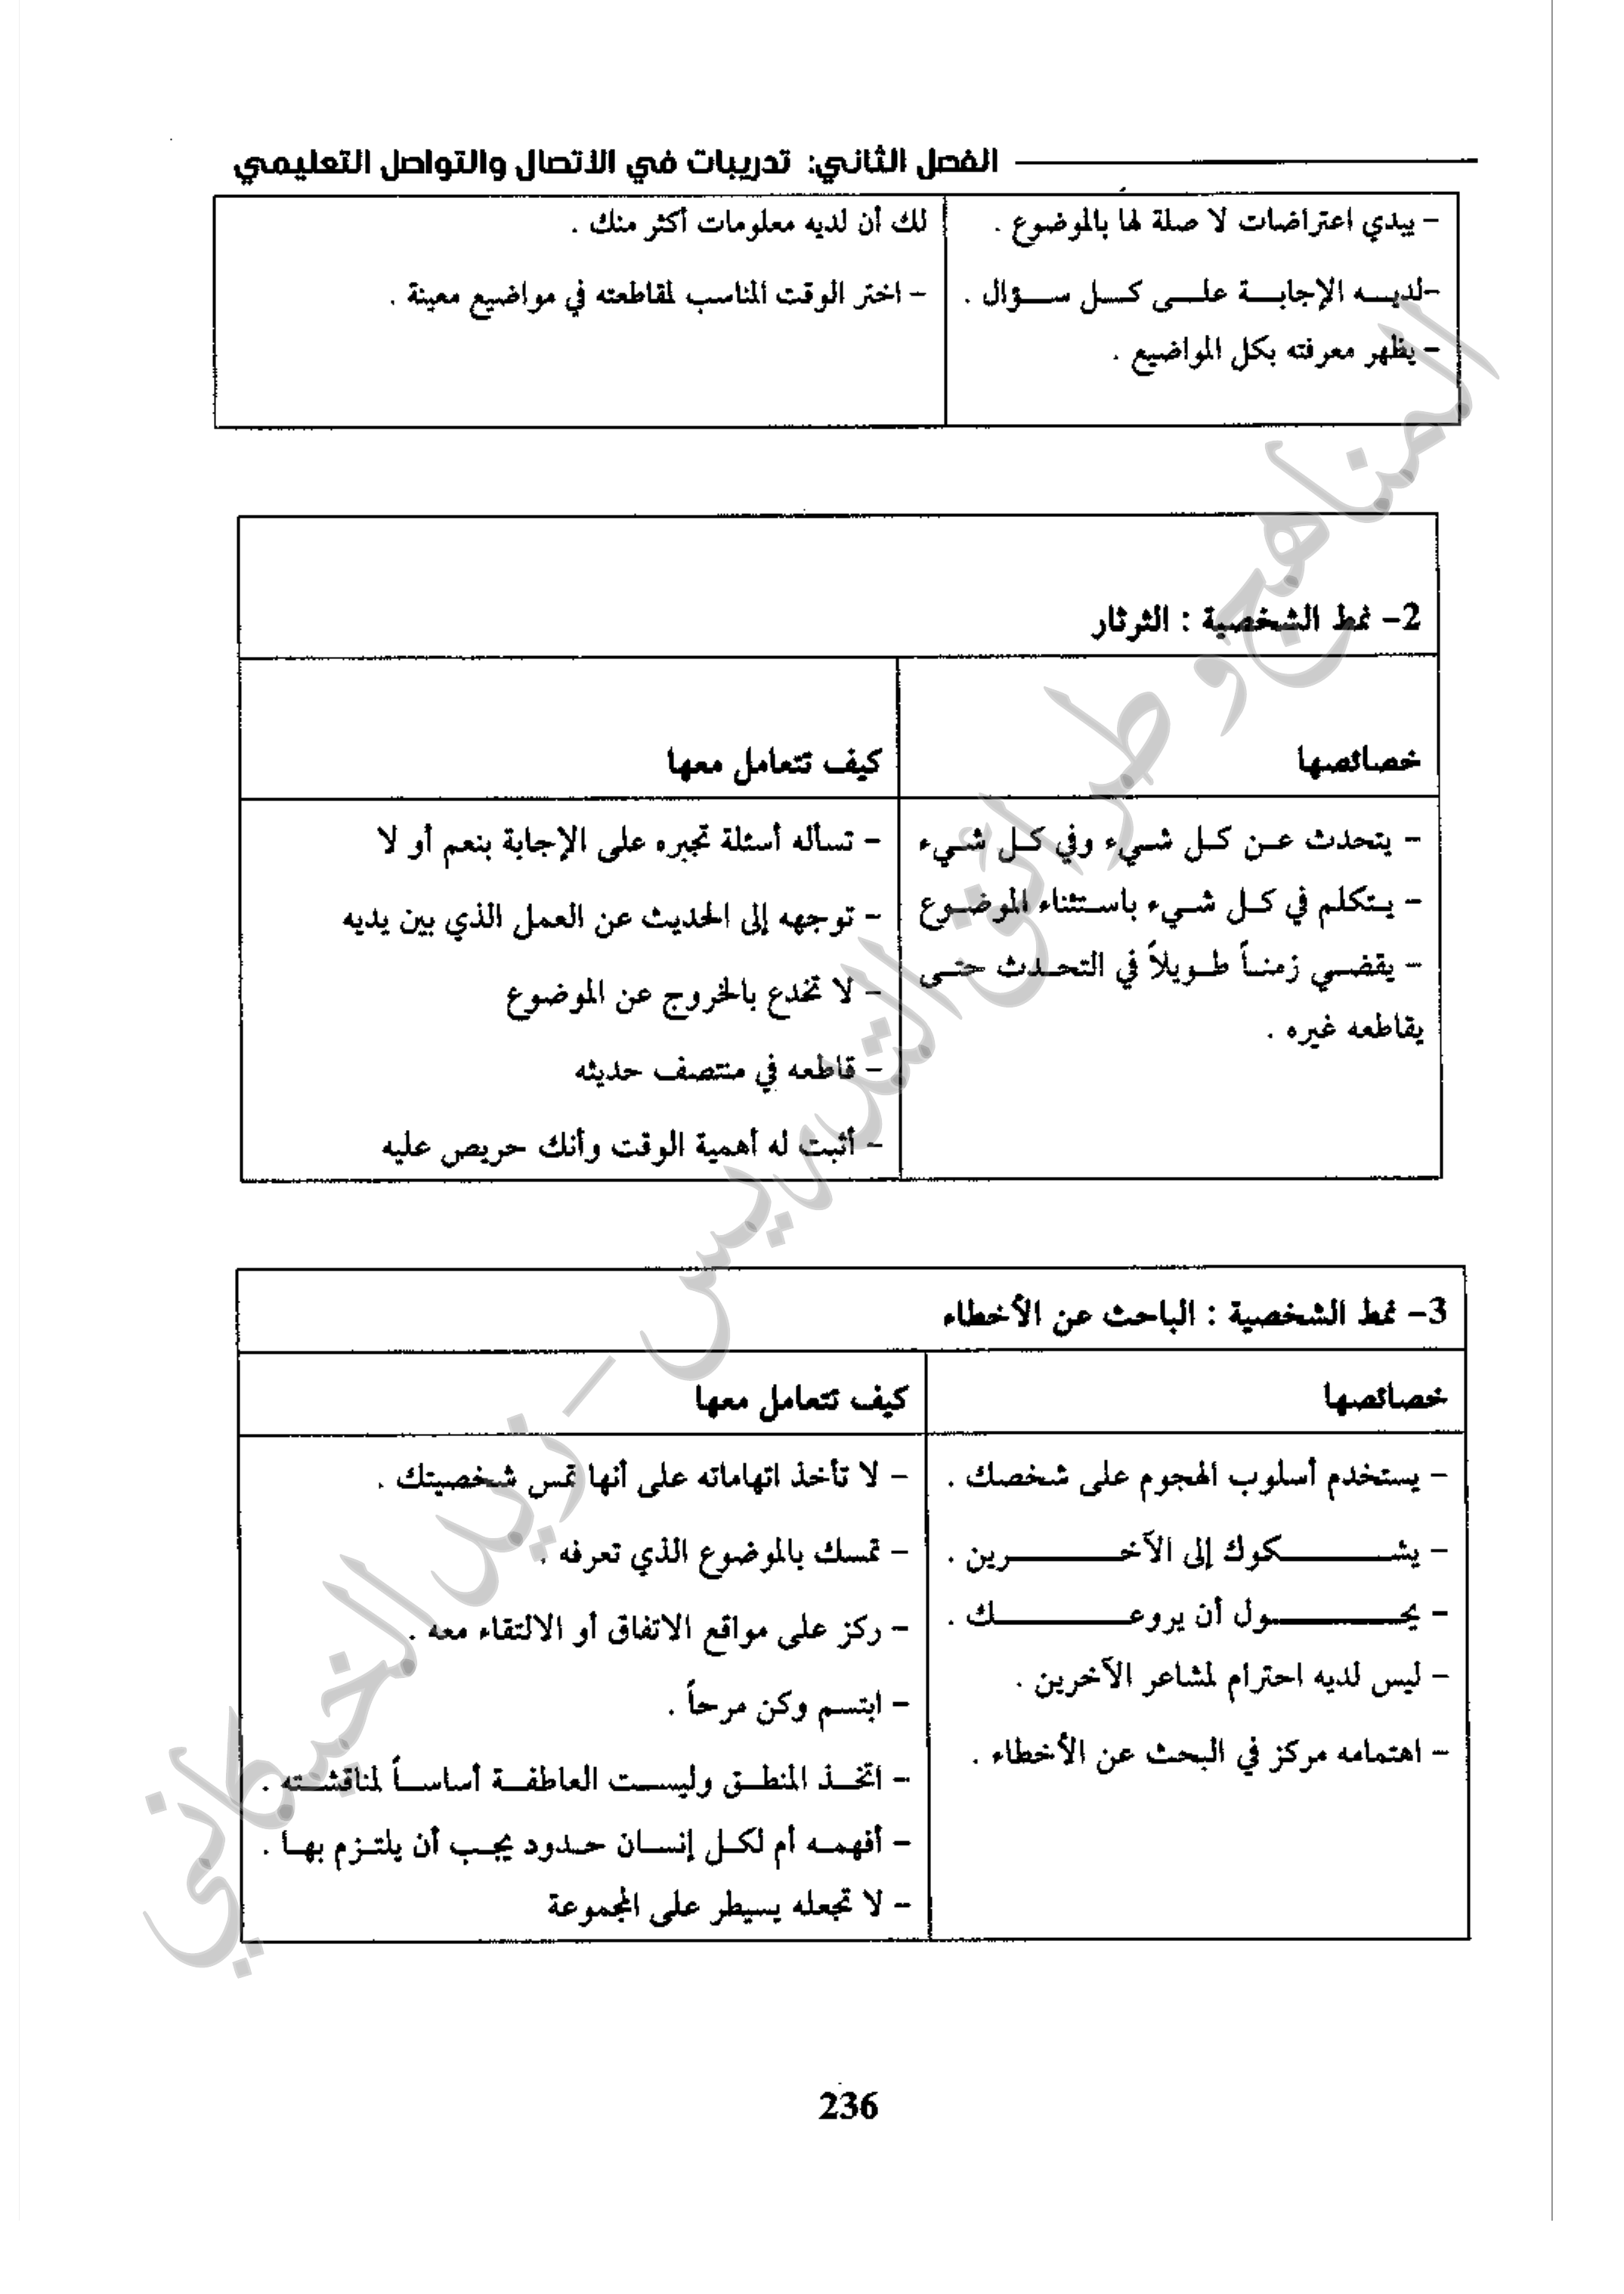 الفصل الثاني: تدريبات في الاتصال والتواصل التعليمي
- يبدي اعتراضات لا صلة لها بالموضوع .
-لديه الإجابة على كل سؤال .
- يظهر معرفته بكل المواضيع .
لك أن لديه معلومات أكثر منك .
- اختر الوقت المناسب لمقاطعته في مواضيع معينة .
2- نمط الشخصية : الثرثار
خصائصها
كيف تتعامل معها
- يتحدث عن كل شيء وفي كل شيء
- يتكلم في كل شيء باستثناء الموضوع
- يقضي زمناً طويلاً في التحدث حتى
يقاطعه غيره .
- تسأله أسئلة تجبره على الإجابة بنعم أو لا
- توجهه إلى الحديث عن العمل الذي بين يديه
- لا تخدع بالخروج عن الموضوع
- قاطعه في منتصف حديثه
- أثبت له أهمية الوقت وأنك حريص عليه
3- نمط الشخصية : الباحث عن الأخطاء
خصائصها
كيف تتعامل معها
- يستخدم أسلوب الهجوم على شخصك .
- يشكوك إلى الآخرين .
- يحول أن يروعك .
- ليس لديه احترام لمشاعر الآخرين .
- اهتمامه مركز في البحث عن الأخطاء .
- لا تأخذ اتهاماته على أنها تمس شخصيتك .
- تمسك بالموضوع الذي تعرفه .
- ركز على مواقع الاتفاق أو الالتقاء معه .
- ابتسم وكن مرحاً .
- اتخذ المنطق وليست العاطفة أساساً لمناقشته .
- أفهمه أم لكل إنسان حدود يجب أن يلتزم بها .
- لا تجعله يسيطر على المجموعة
المناهج و طرائق التدريس - زيد الخيكاني
236